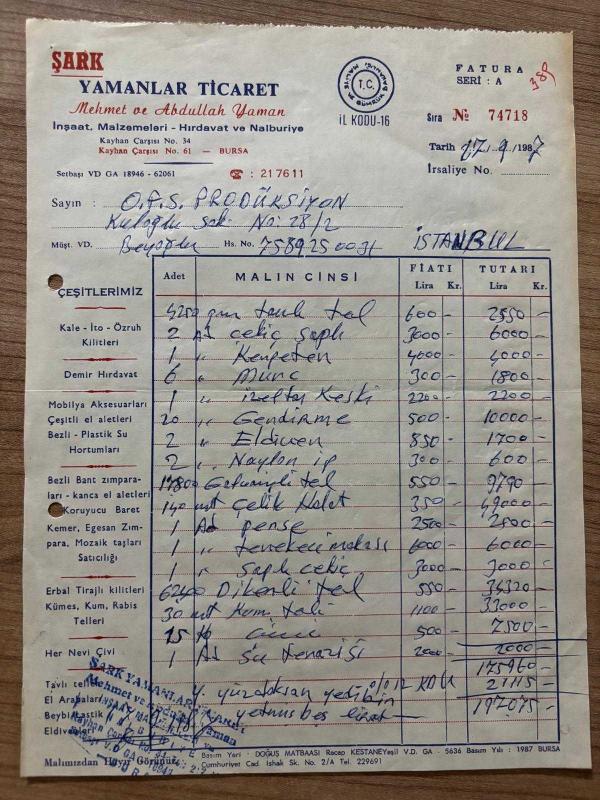 ŞARK
YAMANLAR TİCARET
Mehmet ve Abdullah Yaman
İnşaat. Malzemeleri - Hırdavat ve Nalburiye
Kayhan Çarşısı No. 34
Kayhan Çarşısı No. 61 — BURSA
Setbaşı VD GA 18946 - 62061
☎ : 217611
T.C.
İL KODU-16
FATURA
SERİ : A
389
Sıra No 74718
Tarih 17.9.1987
İrsaliye No.
Sayın : O.F.S. PRODÜKSİYON
Kuloğlu sok. No: 28/2
Müşt. VD. Beyoğlu Hs. No. 7589250031 İSTANBUL
Adet MALIN CİNSİ FİATI Lira Kr. TUTARI Lira Kr.
4250 gram tavlı tel 600 - 2550 -
2 Ad çekiç saplı 3000 - 6000 -
1 " Kerpeten 4000 - 4000 -
6 " 300 - 1800 -
1 " Keski 2200 - 2200 -
20 " Gendirme 500 - 10000 -
2 " Eldiven 850 - 1700 -
2 " Naylon ip 300 - 600 -
17800 Galvanizli tel 550 - 9790 -
140 mt Çelik Halat 350 - 49000 -
1 Ad pense 2500 - 2500 -
1 " tenekeci makası 6000 - 6000 -
1 " Saplı çekiç 3000 - 3000 -
62400 Dikenli tel 550 - 34320 -
30 mt Kum teli 1100 - 33000 -
15 kg Çivi 500 - 7500 -
1 Ad Su terazisi 2000 - 2000 -
175960 -
0/0 12 KDV 21115 -
197075 -
Y. yüzdoksan yedibin
yetmiş beş liradır
ÇEŞİTLERİMİZ
Kale - İto - Özruh
Kilitleri
Demir Hırdavat
Mobilya Aksesuarları
Çeşitli el aletleri
Bezli - Plastik Su
Hortumları
Bezli Bant zımpara-
ları - kanca el aletleri
Koruyucu Baret
Kemer, Egesan Zım-
para, Mozaik taşları
Satıcılığı
Erbal Tirajlı kilitleri
Kümes, Kum, Rabis
Telleri
Her Nevi Çivi
Tavlı
El Arabaları
Eldiven
Malımızdan Hayır Görünüz
ŞARK YAMANLAR
Mehmet ve Abdullah Yaman
Basım Yeri - DOĞUŞ MATBAASI Recep KESTANEYeşil V.D. GA - 5636 Basım Yılı : 1987 BURSA
Cumhuriyet Cad. Ishak Sk. No. 2/A Tel. 229691